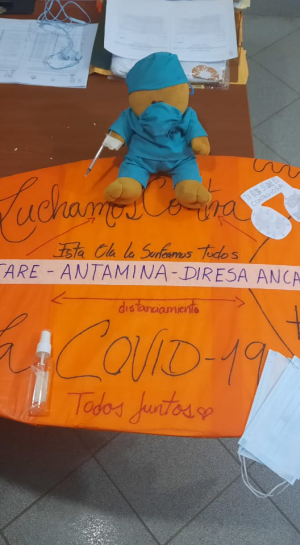 Luchamos Contra
Esta Ola la Surfeamos Todos
TARE - ANTAMINA - DIRESA ANCA
distanciamiento
La COVID-19
Todos Juntos